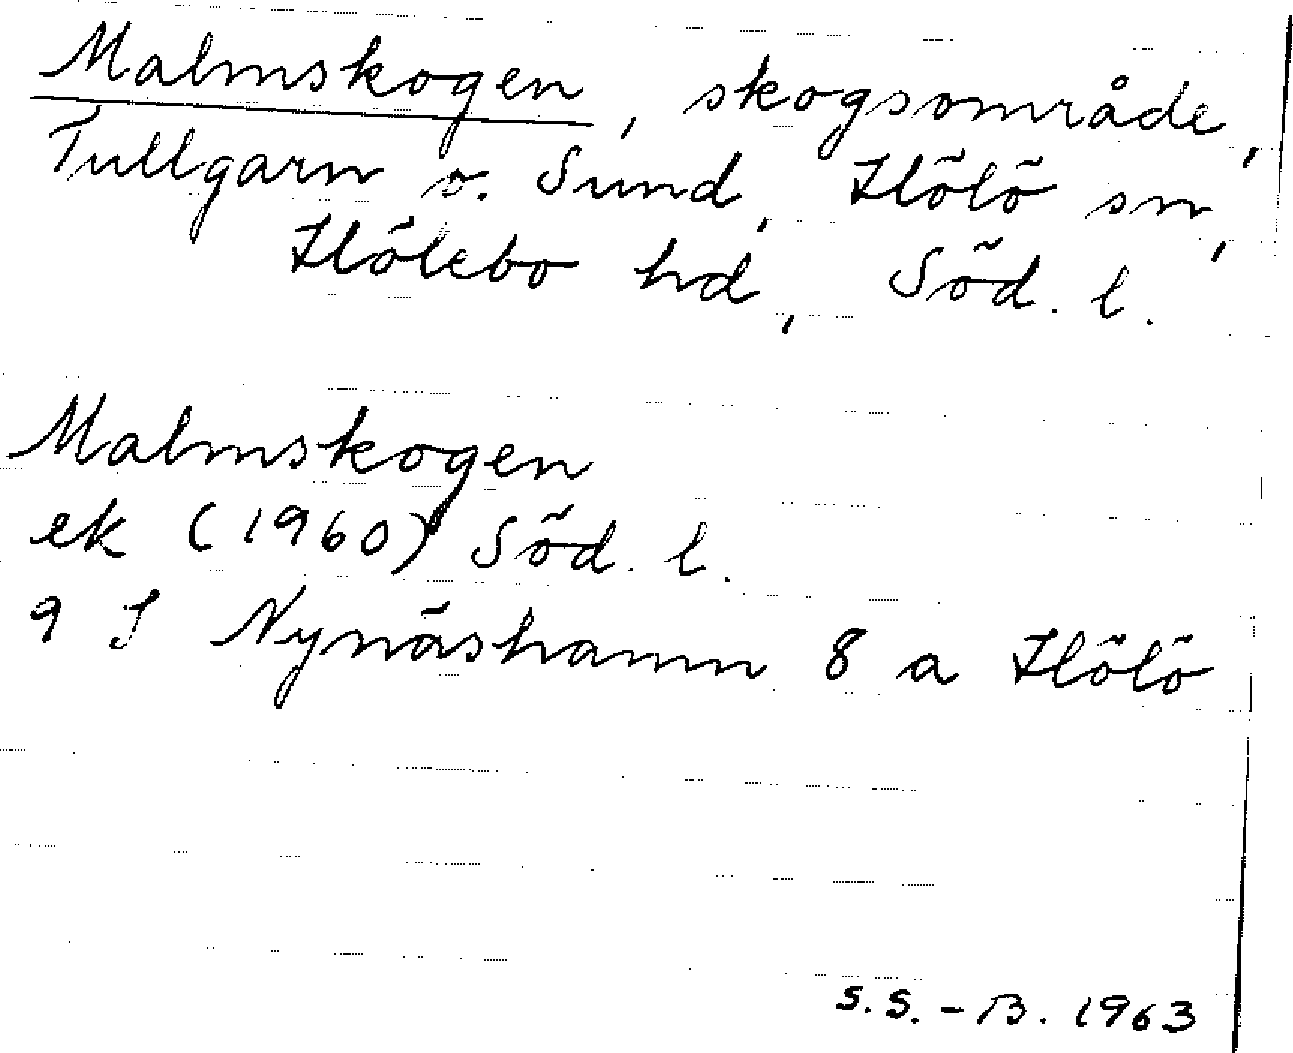 Malmskogen, skogsområde,
Tullgarn o. Sund, Hölö sn,
Hölebo hd, Söd. l.
Malmskogen
ek (1960) Söd. l.
9 I Nynäshamn 8 a Hölö
S.S.-B. 1963